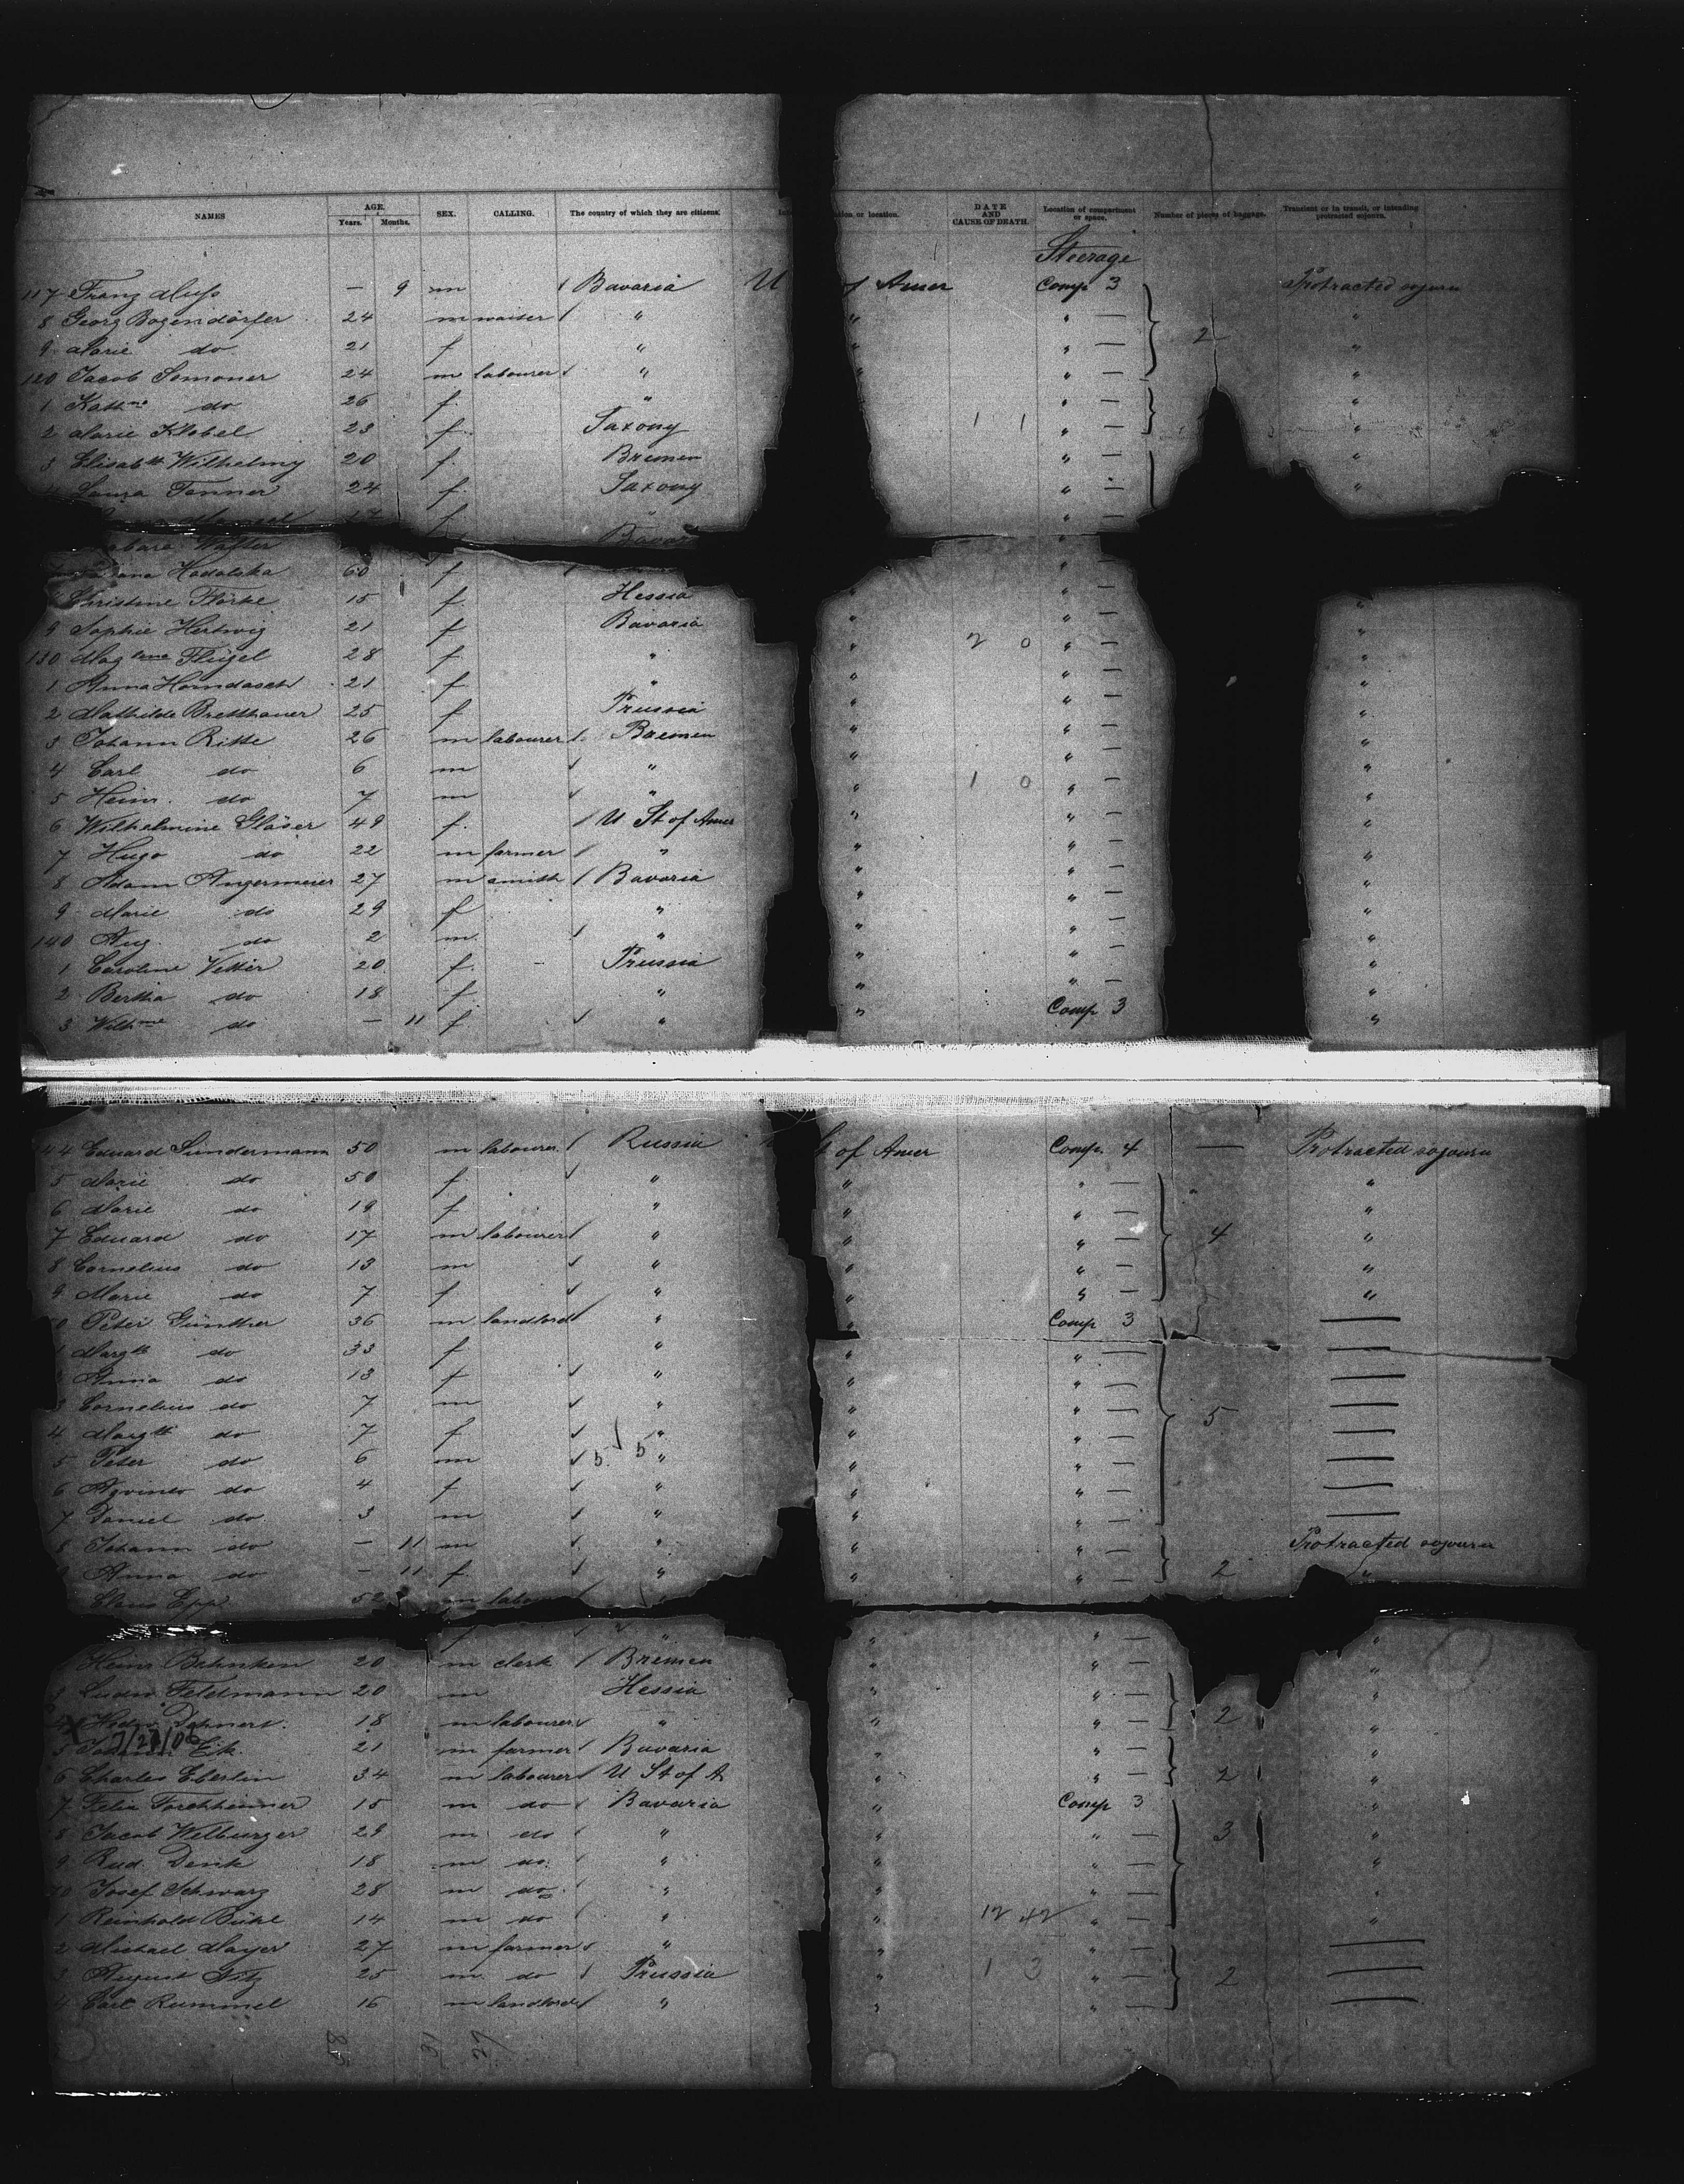 NAMES AGE. Years. Months. SEX. CALLING. The country of which they are citizens. tion or location. DATE AND CAUSE OF DEATH. Location of compartment or space. Number of pieces of baggage. Transient or in transit, or intending protracted sojourn.
Steerage
117 Franz — 9 m Bavaria U Amer Comp 3 Protracted sojourn
8 Georg Bogendörfer 24 m " " " — 2 "
9 Marie do 21 f " " " — "
120 Jacob Semoner 24 m labourer " " " — "
1 Kathne do 26 f " " — "
2 Marie Klobel 23 f Saxony 1 1 " — "
3 Elisabth Wilhelmy 20 f Bremen " — "
Laura Tanner 24 f Saxony " — "
17 f " " —
Bavar "
Hadalska 60 f " —
Christine Flörke 15 f Hessia " " — "
9 Sophie Hertwig 21 f Bavaria " 2 0 " — "
130 Maglena Flügel 28 f " " " — "
1 Anna Horndasch 21 f " " " — "
2 Mathilde Bretthauer 25 f Prussia " " — "
3 Johann Ritte 26 m labourer Bremen " " — "
4 Carl do 6 m " " 1 0 " — "
5 Heinr. do 7 m " " " — "
6 Wilhelmine Gläser 49 f U St of Amer " " — "
7 Hugo do 22 m farmer " " " — "
8 Adam Angermeier 27 m smith Bavaria " " — "
9 Marie do 29 f " " " — "
140 Aug. do 2 m " " " — "
1 Caroline Vetter 20 f Prussia " " — "
2 Bertha do 18 f " " " — "
3 Wilhme do — 11 f " " Comp 3 "
144 Eduard Sündermann 50 m labourer Russia of Amer Comp. 4 — Protracted sojourn
5 Marie do 50 f " " " — "
6 Marie do 19 f " " " — "
7 Eduard do 17 m labourer " " " — 4 "
8 Cornelius do 13 m " " " — "
9 Marie do 7 f " " " — "
0 Peter Günther 36 m landlord " " Comp 3 —
1 Margth do 33 f " " " — —
Anna do 13 f " " " — —
3 Cornelius do 7 m " " " — 5 —
4 Margth do 7 f " " " — —
5 Peter do 6 m 5 5 " " " — —
6 do 4 f " " " — —
7 Daniel do 3 m " " " — —
8 Johann do — 11 m " " " — Protracted sojourn
9 Anna do — 11 f " " " — 2 "
Claus Epp 52 m labou
f " " " — "
Heinr Behnken 20 m clerk Bremen " " — "
3 Ludw. Feldmann 20 m Hessia " " — "
18 m labourer " " " — 2 "
X 7/27/06
5 Eik 21 m farmer Bavaria " — "
6 Charles Eberlin 34 m labourer U St of A " " — 2 "
7 Felix Forchheimer 15 m do Bavaria " Comp 3 "
8 Jacob Welburger 29 m do " " " — 3 "
9 Rud. Denk 18 m do " " " — "
70 Josef Schwarz 28 m do " " " — "
1 Reinhold Bühl 14 m do " " 12 42 " — "
2 Michael Mayer 27 m farmer " " " — —
3 August Nitz 25 m do Prussia " 1 3 " — 2 —
4 Carl Rummel 16 m landlord " " " — —
58 31 27